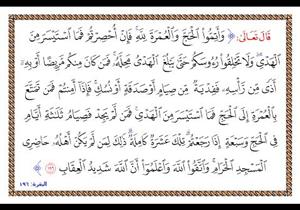 قَالَ تَعَالَىٰ: ﴿ وَأَتِمُّوا۟ ٱلْحَجَّ وَٱلْعُمْرَةَ لِلَّهِ ۚ فَإِنْ أُحْصِرْتُمْ فَمَا ٱسْتَيْسَرَ مِنَ
ٱلْهَدْىِ ۖ وَلَا تَحْلِقُوا۟ رُءُوسَكُمْ حَتَّىٰ يَبْلُغَ ٱلْهَدْىُ مَحِلَّهُۥ ۚ فَمَن كَانَ مِنكُم مَّرِيضًا أَوْ بِهِۦٓ
أَذًى مِّن رَّأْسِهِۦ فَفِدْيَةٌ مِّن صِيَامٍ أَوْ صَدَقَةٍ أَوْ نُسُكٍ ۚ فَإِذَآ أَمِنتُمْ فَمَن تَمَتَّعَ
بِٱلْعُمْرَةِ إِلَى ٱلْحَجِّ فَمَا ٱسْتَيْسَرَ مِنَ ٱلْهَدْىِ ۚ فَمَن لَّمْ يَجِدْ فَصِيَامُ ثَلَـٰثَةِ أَيَّامٍ
فِى ٱلْحَجِّ وَسَبْعَةٍ إِذَا رَجَعْتُمْ ۗ تِلْكَ عَشَرَةٌ كَامِلَةٌ ۗ ذَٰلِكَ لِمَن لَّمْ يَكُنْ أَهْلُهُۥ حَاضِرِى
ٱلْمَسْجِدِ ٱلْحَرَامِ ۚ وَٱتَّقُوا۟ ٱللَّهَ وَٱعْلَمُوٓا۟ أَنَّ ٱللَّهَ شَدِيدُ ٱلْعِقَابِ ١٩٦ ﴾
البقرة: ١٩٦